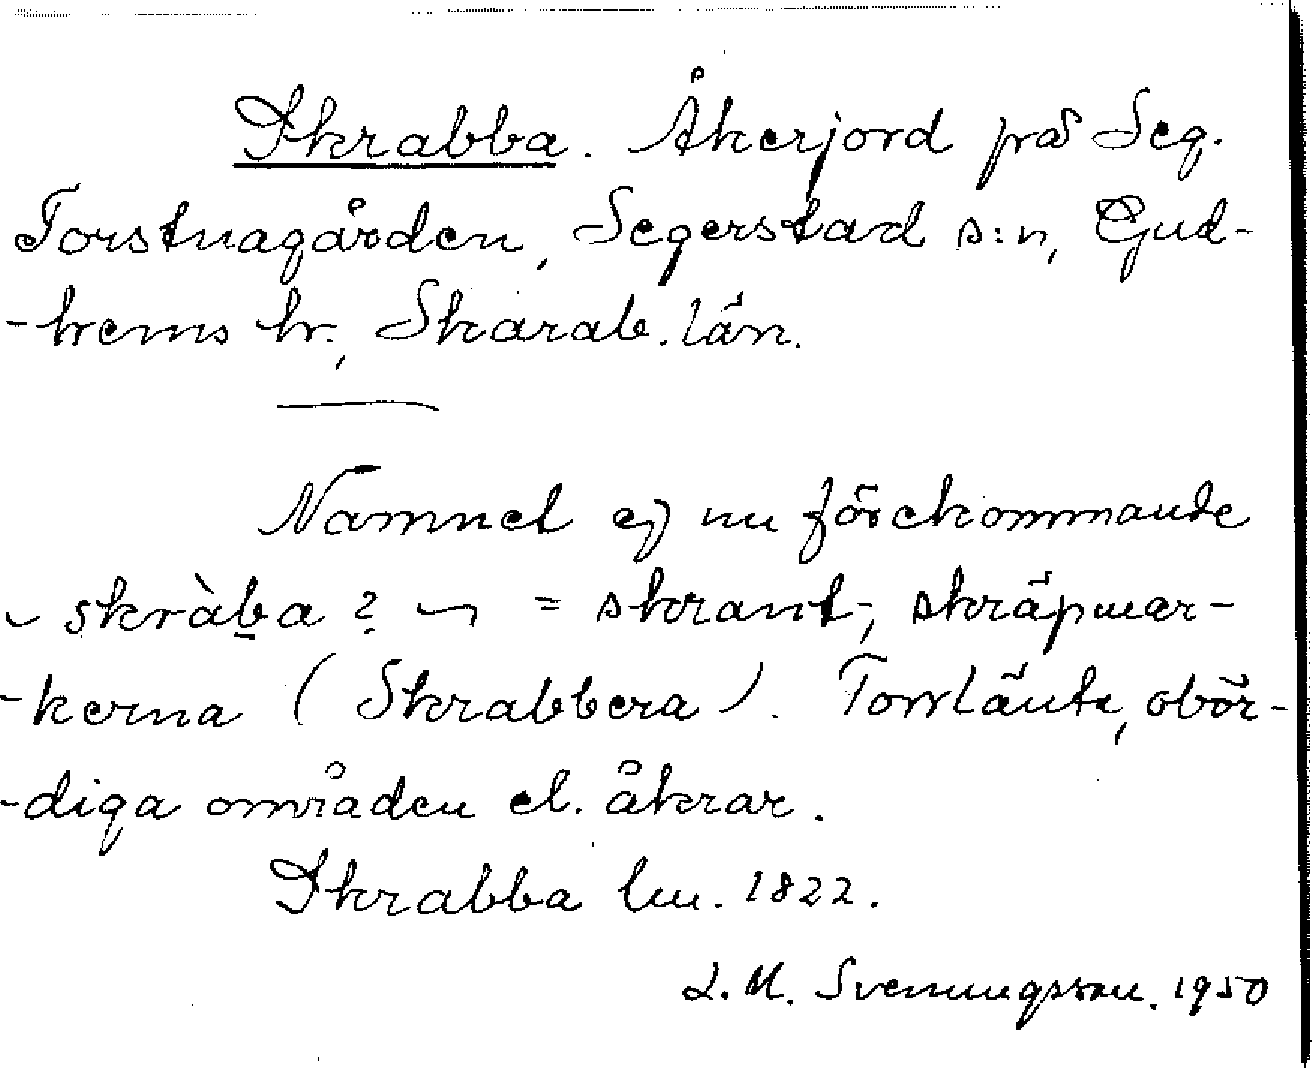 Skrabba. Åkerjord på Seg.
Torstnagården, Segerstad s:n, Gud-
-hems hr., Skarab. län.
Namnet ej nu förekommande
skràba? = skrant-, skräpmar-
-kerna (Skrabbera). Torrlänta, obör-
-diga områden el. åkrar.
Skrabba lm. 1822.
L. M. Svenungsson. 1950